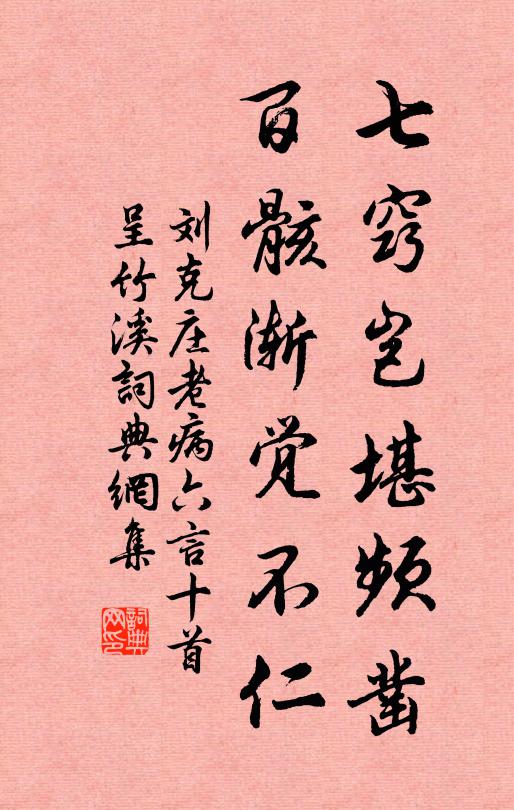 七窍岂堪频凿
百骸渐觉不仁
刘克庄老病六言十首
呈竹溪詞典網集
詞典网印